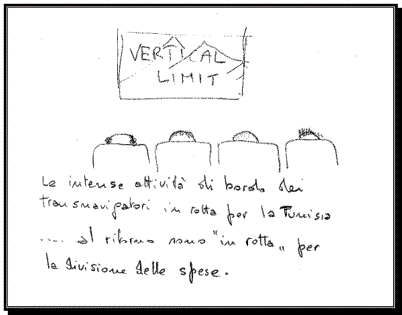 VERTICAL
LIMIT
Le intense attività di bordo dei
transnavigatori in rotta per la Tunisia
.... al ritorno sono "in rotta" per
la divisione delle spese.